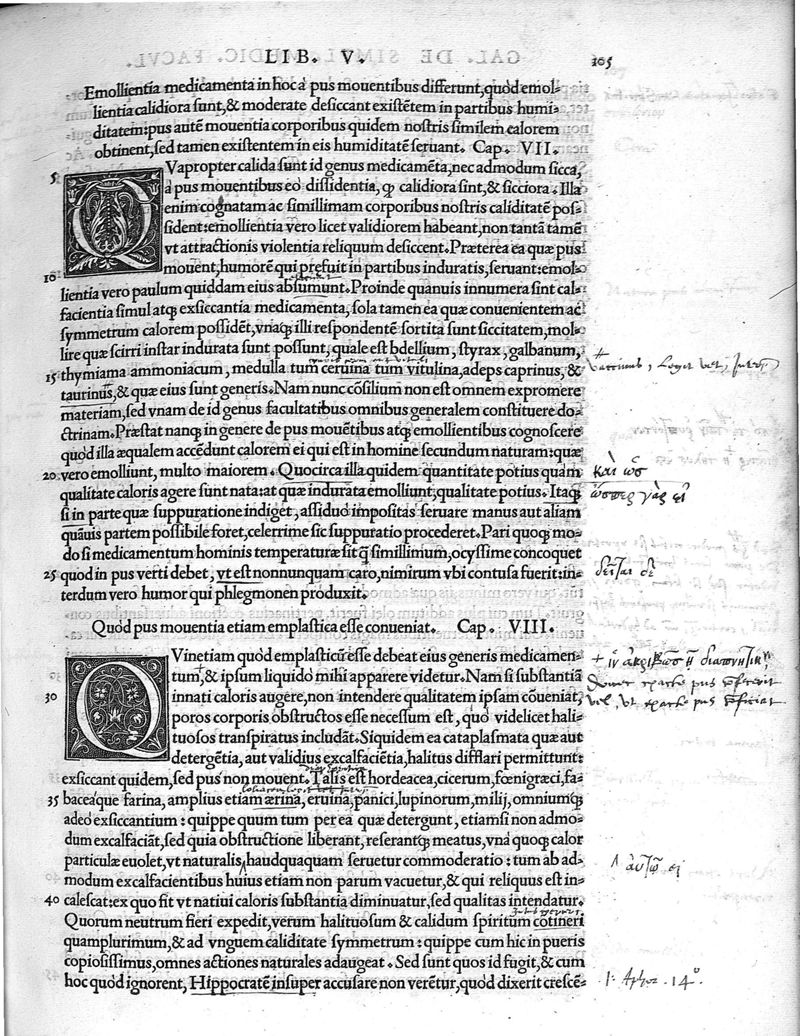 LIB. V. 105
Emollientia medicamenta in hoc a pus mouentibus differunt, quòd emol-
lientia calidiora sunt, & moderate desiccant existẽtem in partibus humi-
ditatem: pus autẽ mouentia corporibus quidem nostris similem calorem
obtinent, sed tamen existentem in eis humiditatẽ seruant. Cap. VII.
5 QVapropter calida sunt id genus medicamẽta, nec admodum sicca,
a pus mouentibus eò dissidentia, ꝙ calidiora sint, & sicciora. Illa
enim cognatam ac simillimam corporibus nostris caliditatẽ pos-
sident: emollientia vero licet validiorem habeant, non tantã tamẽ
vt attractionis violentia reliquum desiccent. Præterea ea quæ pus
10 mouent, humorẽ qui prefuit in partibus induratis, seruant: emol-
lientia vero paulum quiddam eius absumunt. Proinde quanuis innumera sint cal-
facientia simul atq; exsiccantia medicamenta, sola tamen ea quæ conuenientem ac
symmetrum calorem possidẽt, vnaq; illi respondentẽ sortita sunt siccitatem, mol-
lire quæ scirri instar indurata sunt possunt, quale est bdellium, styrax, galbanum,
15 thymiama ammoniacum, medulla tum ceruina tum vitulina, adeps caprinus, &
taurinus, & quæ eius sunt generis. Nam nunc cõsilium non est omnem expromere
materiam, sed vnam de id genus facultatibus omnibus generalem constituere do-
ctrinam. Præstat nanq; in genere de pus mouẽtibus atq; emollientibus cognoscere
quòd illa æqualem accedunt calorem ei qui est in homine secundum naturam: quæ
20 vero emolliunt, multo maiorem. Quocirca illa quidem quantitate potius quam
καὶ ὡς
qualitate caloris agere sunt nata: at quæ indurata emolliunt, qualitate potius. Itaq;
ὥσπερ γὰρ εἰ
si in parte quæ suppuratione indiget, assiduo impositas seruare manus aut aliam
quãuis partem possibile foret, celerrime sic suppuratio procederet. Pari quoq; mo-
do si medicamentum hominis temperaturæ sit q̃ simillimum, ocyssime concoquet
25 quod in pus verti debet, vt est nonnunquam caro, nimirum vbi contusa fuerit: in-
terdum vero humor qui phlegmonen produxit.
Quòd pus mouentia etiam emplastica esse conueniat. Cap. VIII.
QVinetiam quòd emplasticũ esse debeat eius generis medicamen-
tum, & ipsum liquidò mihi apparere videtur. Nam si substantiã
30 innati caloris augere, non intendere qualitatem ipsam cõueniat,
poros corporis obstructos esse necessum est, quò videlicet hali-
tuosos transpiratus includãt. Siquidem ea cataplasmata quæ aut
detergẽtia, aut validius excalfaciẽtia, halitus difflari permittunt:
exsiccant quidem, sed pus non mouent. Talis est hordeacea, cicerum, fœnigræci, fa-
35 baceáque farina, amplius etiam ærina, eruina, panici, lupinorum, milij, omniumq;
adeò exsiccantium: quippe quum tum per ea quæ detergunt, etiamsi non admo-
dum excalfaciãt, sed quia obstructione liberant, referantq; meatus, vnà quoq; calor
particulæ euolet, vt naturalis, haudquaquam seruetur commoderatio: tum ab ad-
modum excalfacientibus huius etiam non parum vacuetur, & qui reliquus est in-
40 calescat: ex quo fit vt natiui caloris substantia diminuatur, sed qualitas intendatur.
Quorum neutrum fieri expedit, verum halituosum & calidum spiritum cõtineri
quamplurimum, & ad vnguem caliditate symmetrum: quippe cum hic in pueris
copiosissimus, omnes actiones naturales adaugeat. Sed sunt quos id fugit, & cum
hoc quòd ignorent, Hippocratẽ insuper accusare non verẽtur, quòd dixerit crescẽ-
1. Aphor. 14º.